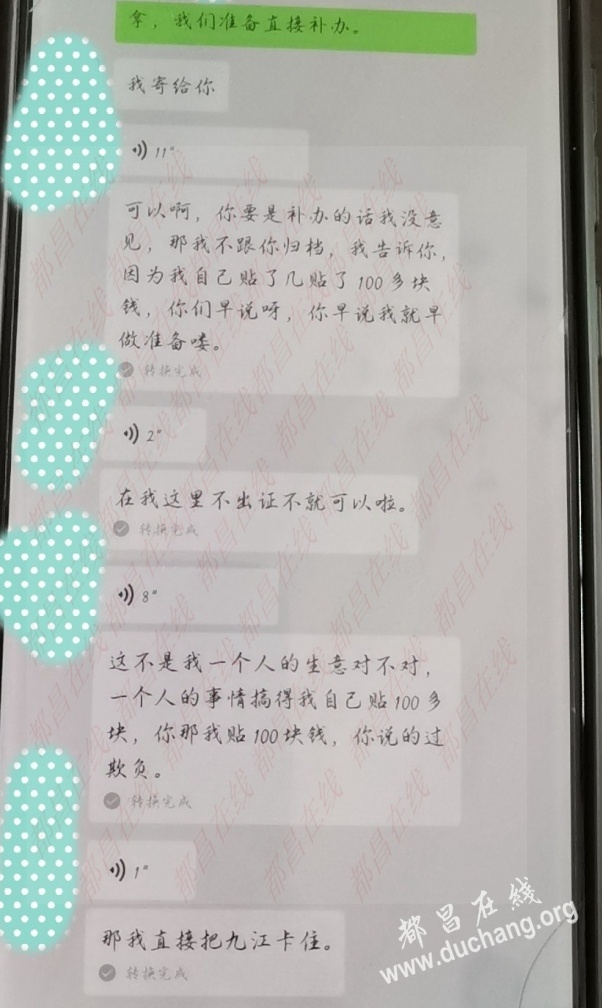 拿，我们准备直接补办。
我寄给你
11"
可以啊，你要是补办的话我没意
见，那我不跟你归档，我告诉你，
因为我自己贴了几贴了100多块
钱，你们早说呀，你早说我就早
做准备喽。
转换完成
2"
在我这里不出证不就可以啦。
转换完成
8"
这不是我一个人的生意对不对，
一个人的事情搞得我自己贴100多
块，你那我贴100块钱，你说的过
欺负。
转换完成
1"
那我直接把九江卡住。
转换完成
都昌在线
www.duchang.org